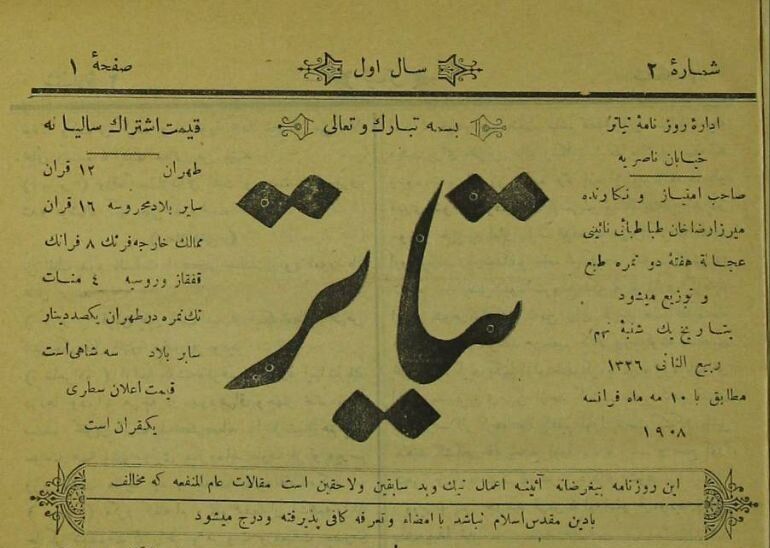 شمارهٔ ۲
سال اول
صفحهٔ ۱
ادارهٔ روزنامهٔ تیاتر
خیابان ناصریه
صاحب امتیاز و نکارنده
میرزا رضاخان طباطبائی نائینی
عجالة هفتهٔ دو نمره طبع
و توزیع میشود
بتاریخ یك شنبهٔ نهم
ربیع الثانی ۱۳۲۶
مطابق با ۱۰ مه ماه فرانسه
۱۹۰۸
بسمه تبارك و تعالی
تیاتر
قیمت اشتراك سالیانه
طهران ۱۲ قران
سایر بلاد محروسه ۱۶ قران
ممالك خارجه فرنك ۸ فرانك
قفقاز وروسیه ٤ منات
تك نمره در طهران یكصد دینار
سایر بلاد سه شاهی است
قیمت اعلان سطری
یكقران است
این روزنامه بیغرضانه آئینه اعمال نیك وبد سابقین ولاحقین است مقالات عام المنفعه که مخالف
بادین مقدس اسلام نباشد با امضاء وتمرفه کافی پذیرفته ودرج میشود